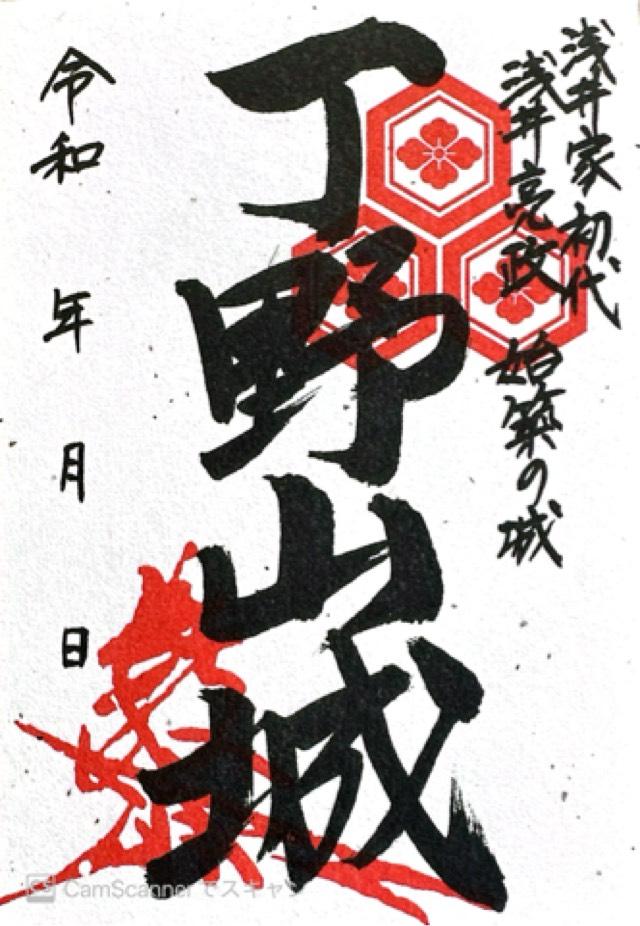 浅井家初代
浅井亮政 始築の城
丁野山城
令和 年 月 日
CamScannerでスキャン